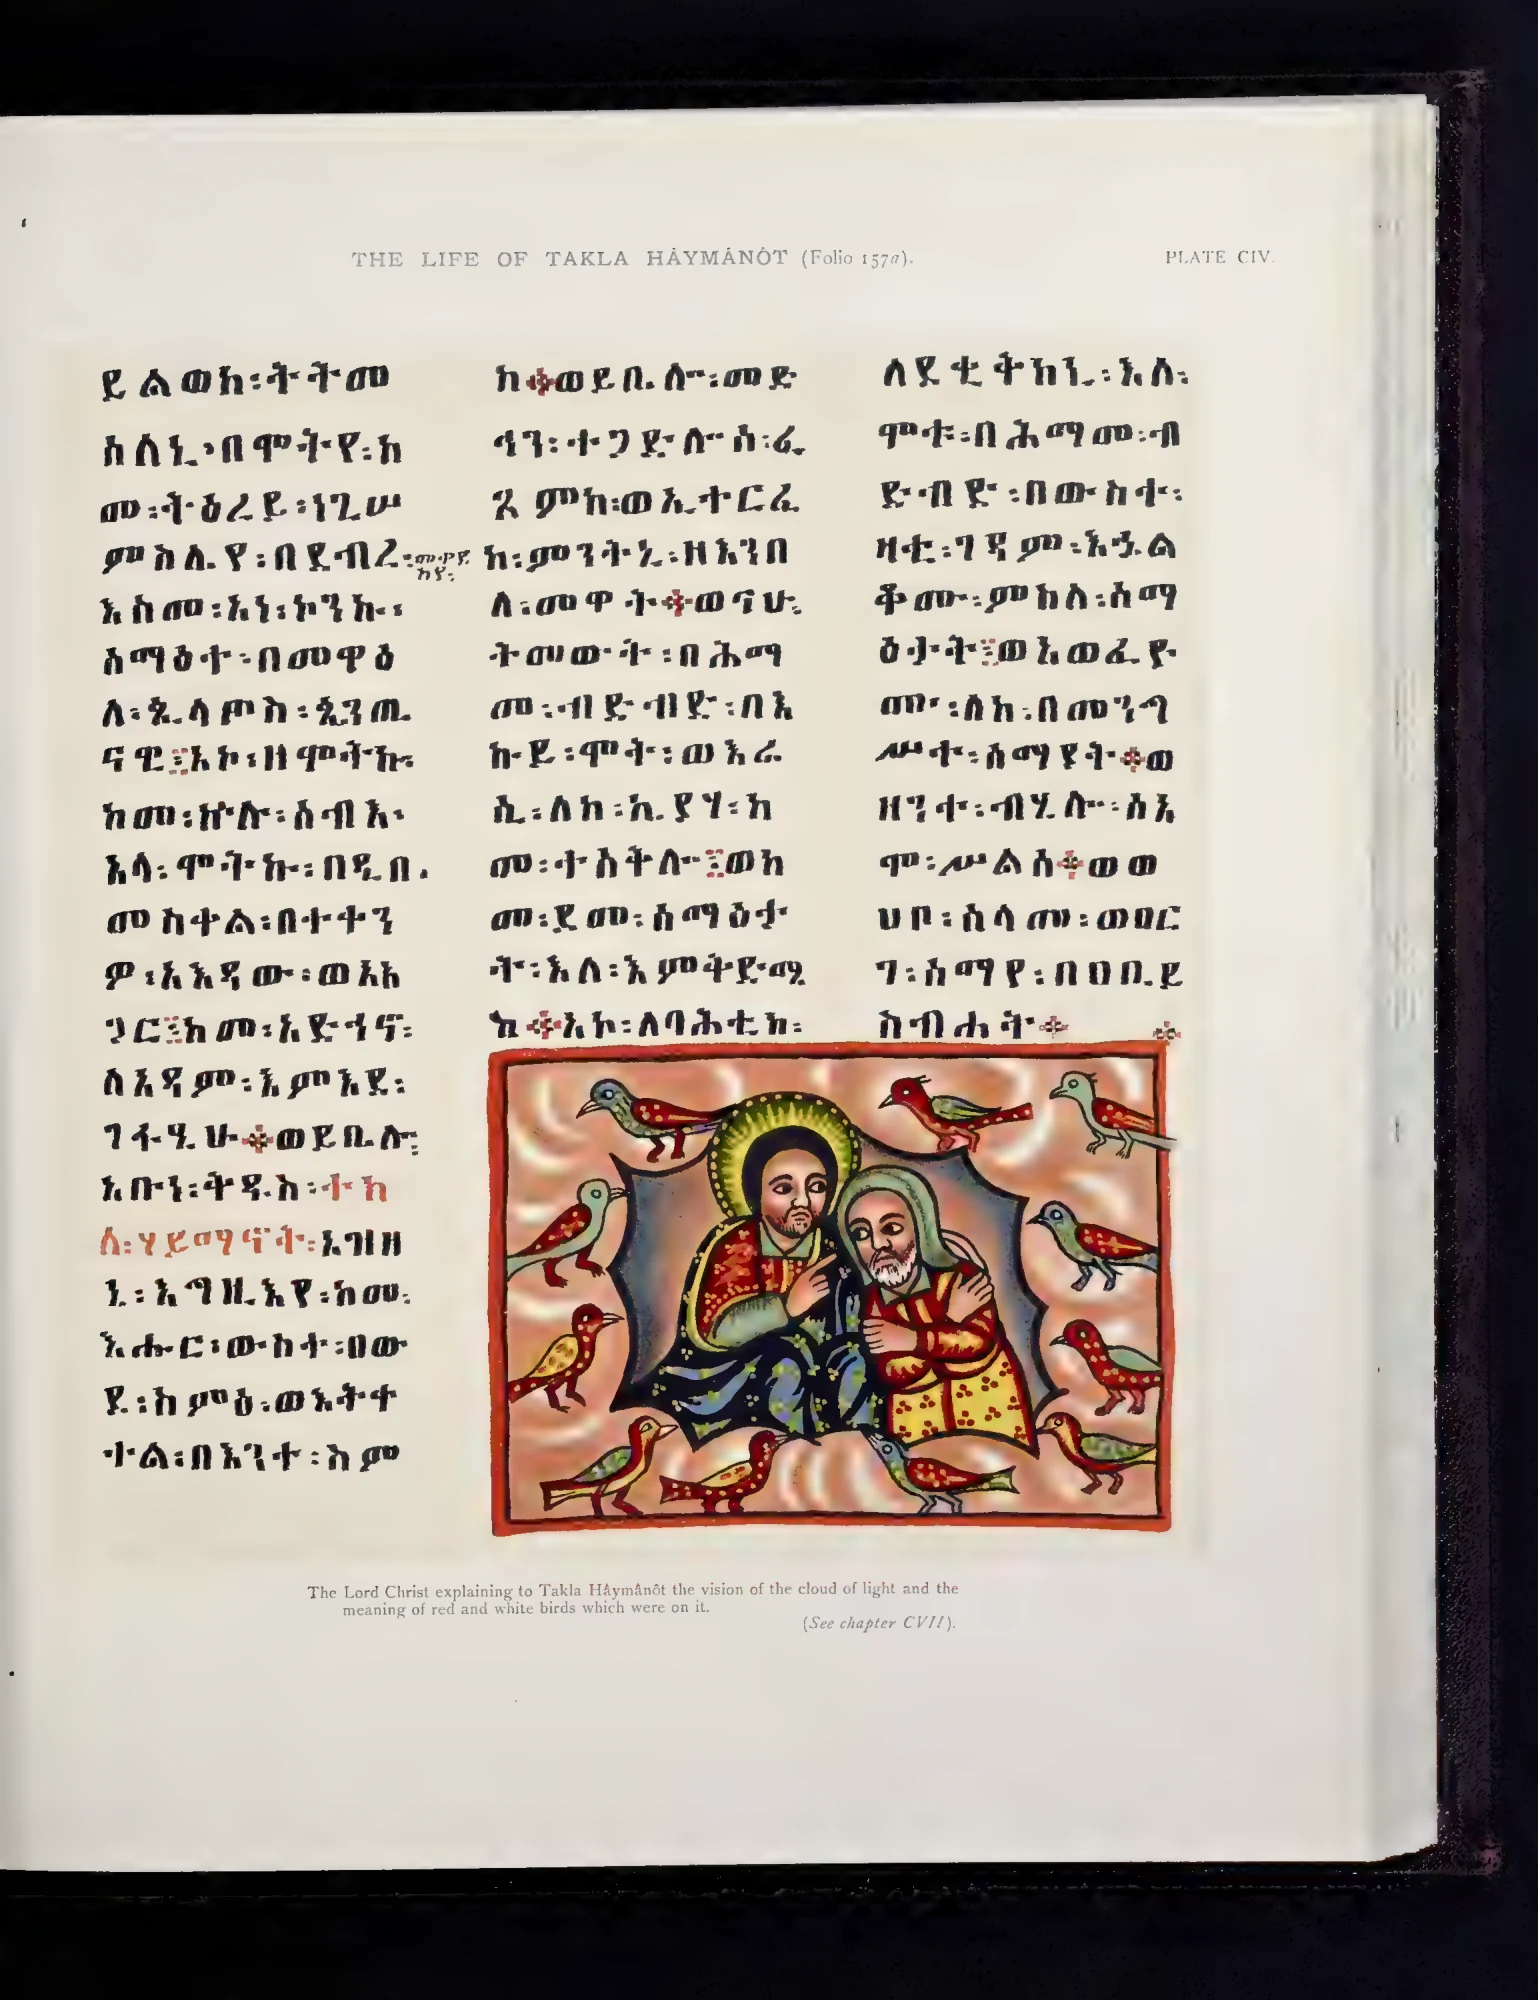 THE LIFE OF TAKLA HÂYMÂNÔT (Folio 157a).
PLATE CIV.
ይልወከ፡ትትመ
ሰለኒ፡በሞትየ፡ከ
መ፡ትዕረይ፡ነጊሠ
ምስሌየ፡በደብረ፡
እስመ፡አነ፡ኮንኩ፡
ሰማዕተ፡በመዋዕ
ለ፡ጲላጦስ፡ጴንጤ
ናዊ፨አኮ፡ዘሞትኩ፡
ከመ፡ኵሉ፡ሰብእ፡
አላ፡ሞትኩ፡በዲበ፡
መስቀል፡በተቀን
ዎ፡አእዳው፡ወአእ
ጋር፨ከመ፡አድኅኖ፡
ለአዳም፡እምእደ፡
ገፋዒሁ።ወይቤሎ፡
አቡነ፡ቅዱስ፡ተክ
ለ፡ሃይማኖት፡አዝዘ
ኒ፡እግዚእየ፡ከመ፡
እሑር፡ውስተ፡በው
ዴ፡ከምዕ፡ወእትቀ
ተል፡በእንተ፡ስም
ከ።ወይቤሎ፡መድ
ኅን፡ተጋድሎስ፡ፈ
ጸምከ፡ወኢተርፈ
ከ፡ምንትኒ፡ዘእንበ
ለ፡መዋት።ወናሁ፡
ትመውት፡በሕማ
መ፡ብድብድ፡በእ
ኩይ፡ሞት፡ወእሬ
ሲ፡ለከ፡ኪያሃ፡ከ
መ፡ተሰቅሎ፨ወከ
መ፡ደመ፡ሰማዕታ
ት፡እለ፡እምቅድሜ
ከ።አኮ፡ለባሕቲከ፡
ለደቂቅከኒ፡እለ፡
ሞቱ፡በሕማመ፡ብ
ድብድ፡በውስተ፡
ዛቲ፡ገዳም፡እኌል
ቆሙ፡ምስለ፡ሰማ
ዕታት፨ወእወፈየ
መ፡ለከ፡በመንግ
ሥተ፡ሰማያት።ወ
ዘንተ፡ብሂሎ፡ሰእ
ሞ፡ሥልሰ።ወወ
ሀቦ፡ሰላመ፡ወዐር
ገ፡ሰማየ፡በዐቢይ
ስብሐት።
The Lord Christ explaining to Takla Hâymânôt the vision of the cloud of light and the
meaning of red and white birds which were on it.
(See chapter CVII).